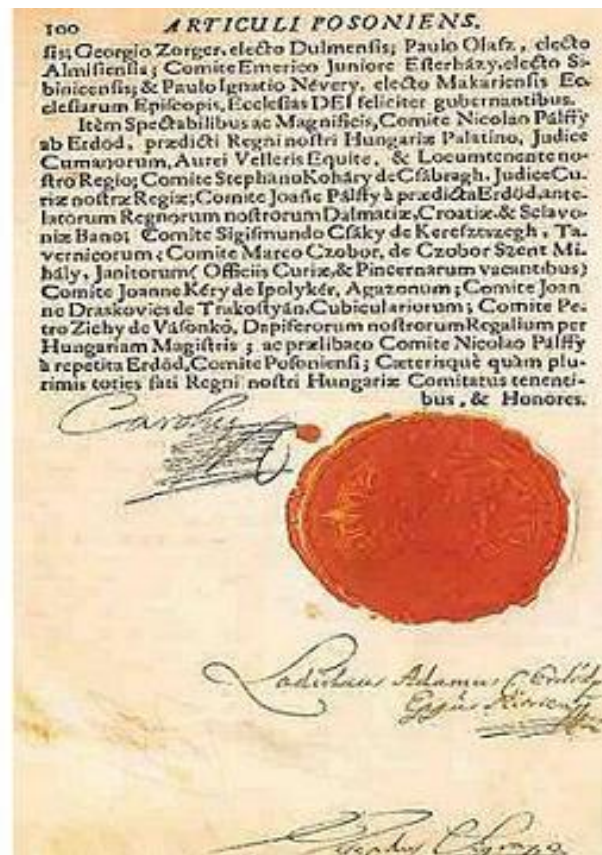 100 ARTICULI POSONIENS.
sis; Georgio Zorger, electo Dulmensis; Paulo Olasz, electo
Almisiensis; Comite Emerico Juniore Esterházy, electo Si-
binicensis; & Paulo Ignatio Névery, electo Makariensis Ec-
clesiarum Episcopis, Ecclesias DEI feliciter gubernantibus.
Itèm Spectabilibus ac Magnificis, Comite Nicolao Pálffy
ab Erdöd, prædicti Regni nostri Hungariæ Palatino, Judice
Cumanorum, Aurei Velleris Equite, & Locumtenente no-
stro Regio; Comite Stephano Koháry de Csábragh, Judice Cu-
riæ nostræ Regiæ; Comite Joañe Pálffy à prædicta Erdöd, ante-
latorum Regnorum nostrorum Dalmatiæ, Croatiæ, & Sclavo-
niæ Bano; Comite Sigismundo Csáky de Keresztszegh, Ta-
vernicorum; Comite Marco Czobor, de Czobor Szent Mi-
hály, Janitorum (Officiis Curiæ, & Pincernarum vacantibus)
Comite Joanne Kéry de Ipolykér, Agazonum; Comite Joan
ne Draskovics de Trakostyán, Cubiculariorum; Comite Pe-
tro Zichy de Vásonkö, Dapiferorum nostrorum Regalium per
Hungariam Magistris; ac prælibato Comite Nicolao Pálffy
à repetita Erdöd, Comite Posoniensi; Cæterisquè quàm plu-
rimis toties fati Regni nostri Hungariæ Comitatus tenenti-
bus, & Honores.
Carolus
Ladislaus Adamus